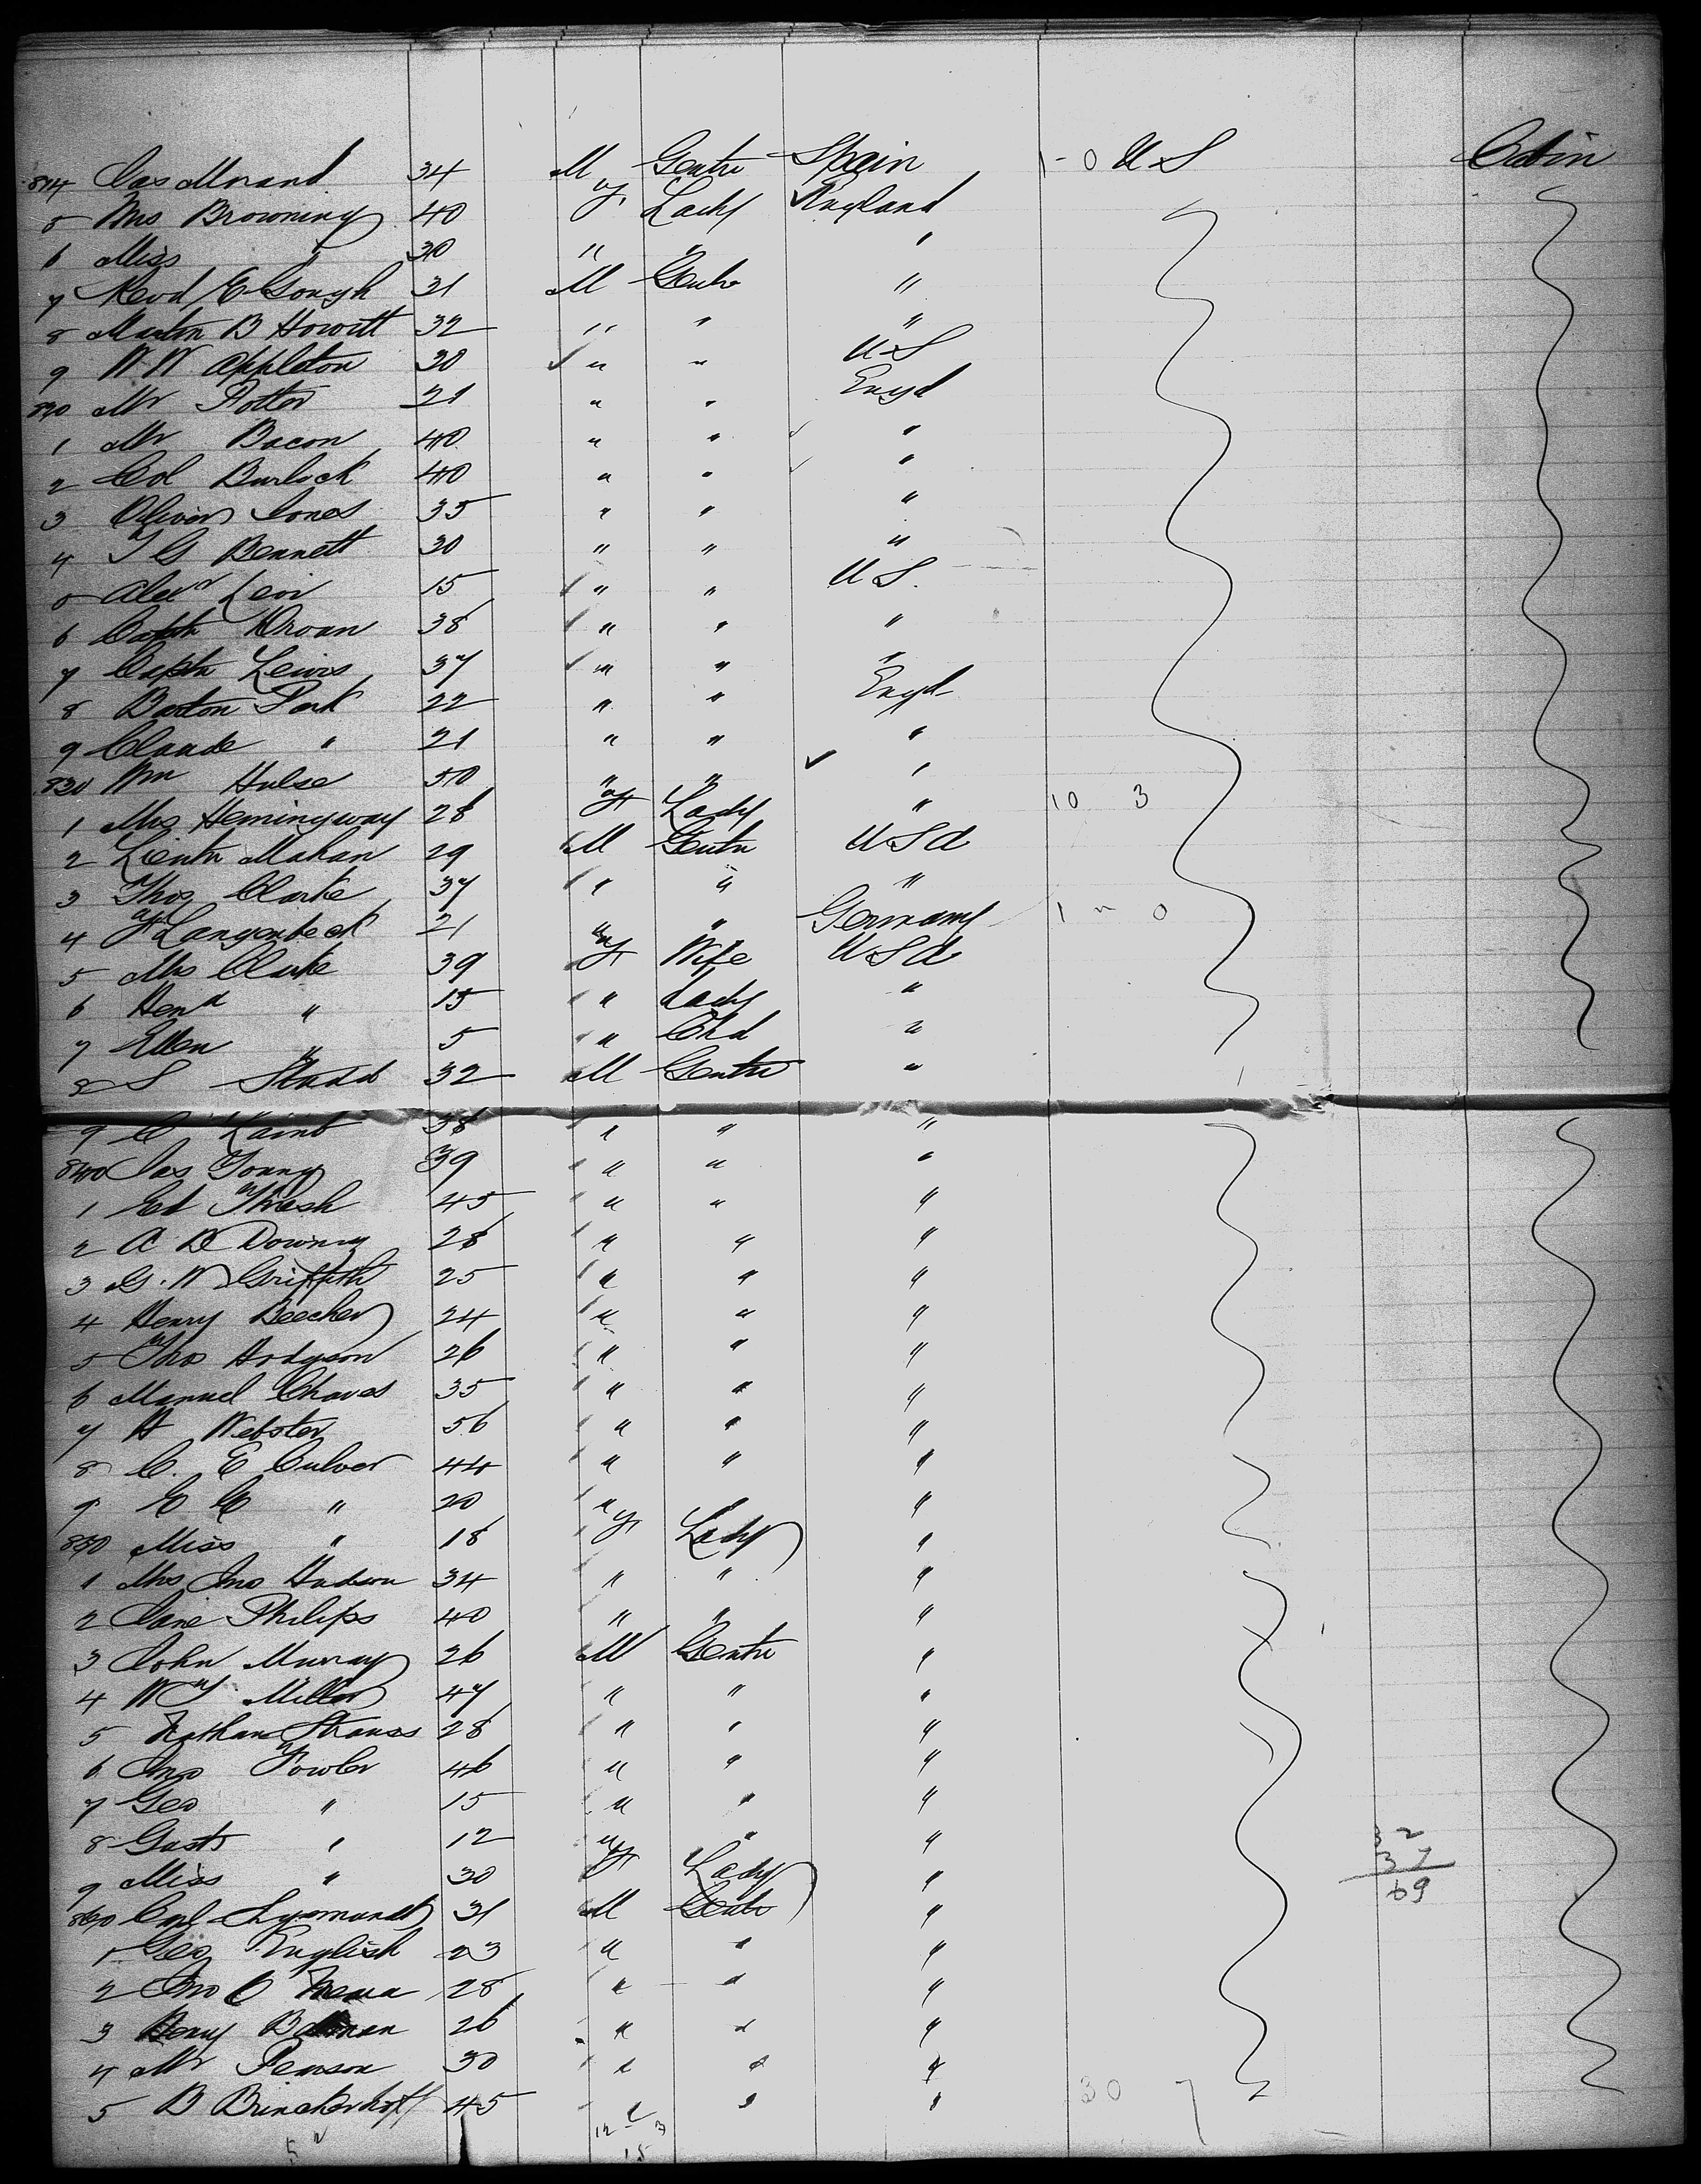 814 Jas Morand 34 M Gentn Spain 1-0 U S Cabin
5 Mrs Browning 40 F Lady England
6 Miss " 30 " " "
7 Revd E Gough 31 M Gentn "
8 Martin B Howitt 32 " " "
9 W W Appleton 30 " " U S
820 Mr Potter 21 " " Engd
1 Mr Bacon 40 " " "
2 Col Burlock 40 " " "
3 Oliver Jones 35 " " "
4 T G Bennett 30 " " "
5 Alexr Levi 15 " " U S.
6 Captn 38 " " "
7 Captn Lewis 37 " " "
8 Barton Park 22 " " Engd
9 Claude " 21 " " "
830 Wm Hulse 50 " " "
1 Mrs Hemingway 28 F Lady " 10 3
2 Lieutn Mahan 29 M Gentn U S A
3 Thos Clarke 37 " " "
4 F Langenbeck 21 " " Germany 1 " 0
5 Mrs Clarke 39 F Wife U S A
6 Hena " 15 " Lady "
7 Ellen " 5 " Chd "
8 S 32 M Gentn "
9 C 38 " " "
840 Jas Young 39 " " "
1 Ed Thresh 45 " " "
2 A B Downing 28 " " "
3 G. W Griffith 25 " " "
4 Henry Beecher 24 " " "
5 Thos Hodgson 26 " " "
6 Manuel Chaves 35 " " "
7 H Webster 56 " " "
8 C. E Culver 44 " " "
9 E C " 20 " " "
850 Miss " 18 F Lady "
1 Mrs Jno Hudson 34 " " "
2 Jane Philips 40 " " "
3 John Murray 26 M Gentn "
4 W T Miller 47 " " "
5 Nathan Strauss 28 " " "
6 Jno Fowler 46 " " "
7 Geo " 15 " " "
8 " 12 " " " 32
9 Miss " 30 F Lady " 37
860 Carl 31 M Gentn " 69
1 Geo English 23 " " "
2 Jno C 28 " " "
3 Henry 26 " " "
4 Mr Penson 30 " " "
5 B Brinckerhoff 45 " " " 30 7
12 3
5 15